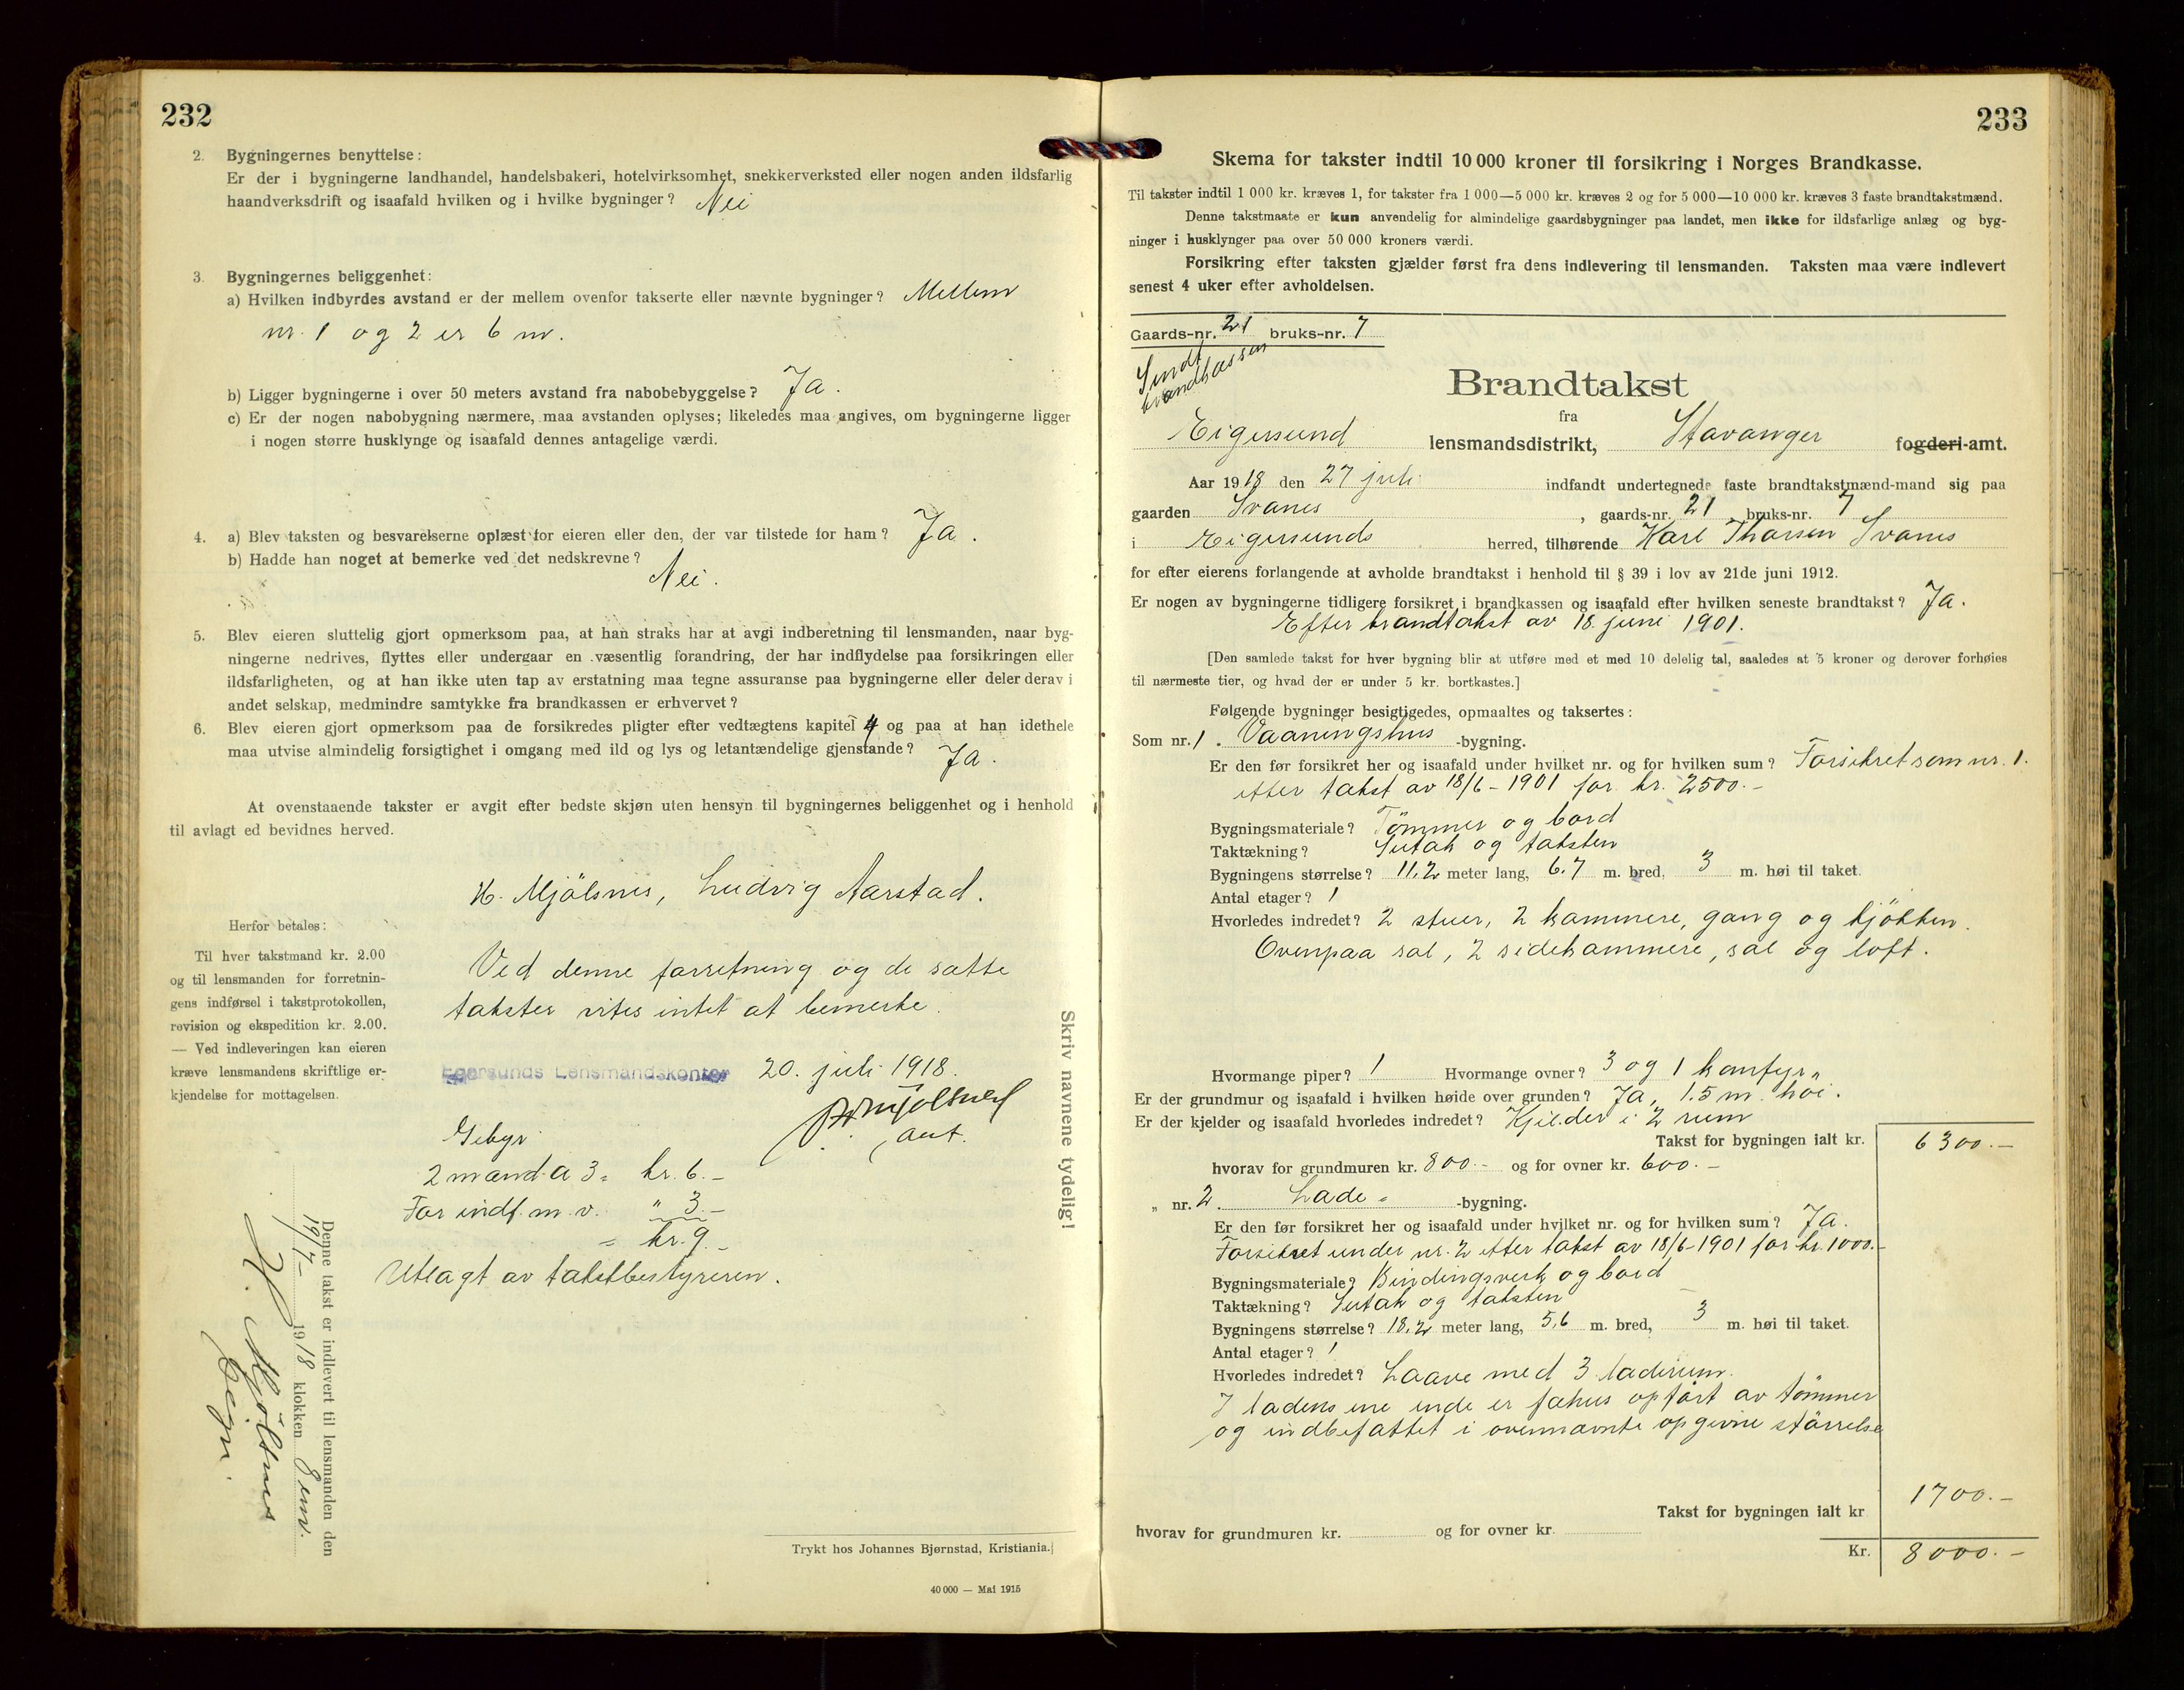 232
2. Bygningernes benyttelse:
Er der i bygningerne landhandel, handelsbakeri, hotelvirksomhet, snekkerverksted eller nogen anden ildsfarlig
haandverksdrift og isaafald hvilken og i hvilke bygninger? Nei
3. Bygningernes beliggenhet:
a) Hvilken indbyrdes avstand er der mellem ovenfor takserte eller nævnte bygninger? Mellem
nr. 1 og 2 er 6 m.
b) Ligger bygningerne i over 50 meters avstand fra nabobebyggelse? Ja.
c) Er der nogen nabobygning nærmere, maa avstanden oplyses; likeledes maa angives, om bygningerne ligger
i nogen større husklynge og isaafald dennes antagelige værdi.
4. a) Blev taksten og besvarelserne oplæst for eieren eller den, der var tilstede for ham? Ja.
b) Hadde han noget at bemerke ved det nedskrevne? Nei.
5. Blev eieren sluttelig gjort opmerksom paa, at han straks har at avgi indberetning til lensmanden, naar byg-
ningerne nedrives, flyttes eller undergaar en væsentlig forandring, der har indflydelse paa forsikringen eller
ildsfarligheten, og at han ikke uten tap av erstatning maa tegne assuranse paa bygningerne eller deler derav i
andet selskap, medmindre samtykke fra brandkassen er erhvervet?
6. Blev eieren gjort opmerksom paa de forsikredes pligter efter vedtægtens kapitel 4 og paa at han idethele
maa utvise almindelig forsigtighet i omgang med ild og lys og letantændelige gjenstande? Ja.
At ovenstaaende takster er avgit efter bedste skjøn uten hensyn til bygningernes beliggenhet og i henhold
til avlagt ed bevidnes herved.
H. Mjölsnes, Ludvig Aarstad.
Herfor betales:
Til hver takstmand kr. 2.00
og til lensmanden for forretnin-
gens indførsel i takstprotokollen,
revision og ekspedition kr. 2.00.
— Ved indleveringen kan eieren
kræve lensmandens skriftlige er-
kjendelse for mottagelsen.
Ved denne forretning og de satte
takster vites intet at bemerke.
Egersunds Lensmandskontor 20. juli 1918.
Mjølsnes
aut.
Gebyr
2 mænd a 3 = kr. 6.-
For indf. m. v. " 3.-
= kr. 9.-
Utlagt av takstbestyreren.
Denne takst er indlevert til lensmanden den
19/7- 1918 klokken 8 em.
H. Mjölsnes
Skriv navnene tydelig!
Trykt hos Johannes Bjørnstad, Kristiania.
40 000 — Mai 1915
233
Skema for takster indtil 10 000 kroner til forsikring i Norges Brandkasse.
Til takster indtil 1 000 kr. kræves 1, for takster fra 1 000—5 000 kr. kræves 2 og for 5 000—10 000 kr. kræves 3 faste brandtakstmænd.
Denne takstmaate er kun anvendelig for almindelige gaardsbygninger paa landet, men ikke for ildsfarlige anlæg og byg-
ninger i husklynger paa over 50 000 kroners værdi.
Forsikring efter taksten gjælder først fra dens indlevering til lensmanden. Taksten maa være indlevert
senest 4 uker efter avholdelsen.
Gaards-nr. 21 bruks-nr. 7
Sendt
brandkassen
Brandtakst
fra
Eigersund lensmandsdistrikt, Stavanger fogderi-amt.
Aar 1918 den 27 juli indfandt undertegnede faste brandtakstmænd-mand sig paa
gaarden Svanes, gaards-nr. 21 bruks-nr. 7
i Eigersunds herred, tilhørende Karl Thorsen Svanes
for efter eierens forlangende at avholde brandtakst i henhold til § 39 i lov av 21de juni 1912.
Er nogen av bygningerne tidligere forsikret i brandkassen og isaafald efter hvilken seneste brandtakst? Ja.
Efter brandtakst av 18. juni 1901.
[Den samlede takst for hver bygning blir at utføre med et med 10 delelig tal, saaledes at 5 kroner og derover forhøies
til nærmeste tier, og hvad der er under 5 kr. bortkastes.]
Følgende bygninger besigtigedes, opmaaltes og taksertes:
Som nr. 1. Vaaningshus -bygning.
Er den før forsikret her og isaafald under hvilket nr. og for hvilken sum? Forsikret som nr. 1.
efter takst av 18/6-1901 for kr. 2500.-
Bygningsmateriale? Tömmer og bord
Taktækning? Sutak og taksten
Bygningens størrelse? 11,2 meter lang, 6.7 m. bred, 3 m. høi til taket.
Antal etager? 1
Hvorledes indredet? 2 stuer, 2 kammere, gang og kjökken.
Ovenpaa sal, 2 sidekammere, sal og loft.
Hvormange piper? 1 Hvormange ovner? 3 og 1 komfyr
Er der grundmur og isaafald i hvilken høide over grunden? Ja, 1.5 m. høi.
Er der kjelder og isaafald hvorledes indredet? Kjelder i 2 rum
Takst for bygningen ialt kr. 6300.-
hvorav for grundmuren kr. 800.- og for ovner kr. 600.-
„ nr. 2. Lade- -bygning.
Er den før forsikret her og isaafald under hvilket nr. og for hvilken sum? Ja.
Forsikret under nr. 2 efter takst av 18/6-1901 for kr. 1000.-
Bygningsmateriale? Bindingsverk og bord
Taktækning? Sutak og taksten
Bygningens størrelse? 18,2 meter lang, 5,6 m. bred, 3 m. høi til taket.
Antal etager? 1
Hvorledes indredet? Laave med 3 laderum.
I ladens ene ende er fahus opfört av tömmer
og indbefattet i ovennævnte opgivne störrelse
Takst for bygningen ialt kr 1700.-
hvorav for grundmuren kr. og for ovner kr.
Kr. 8000.-